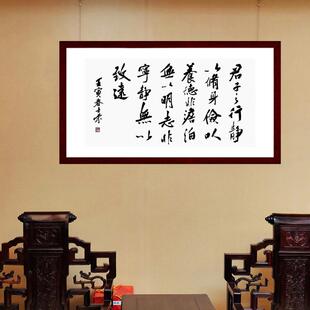 君子之行靜
以脩身儉以
養德非澹泊
無以明志非
寧靜無以
致遠
壬寅春